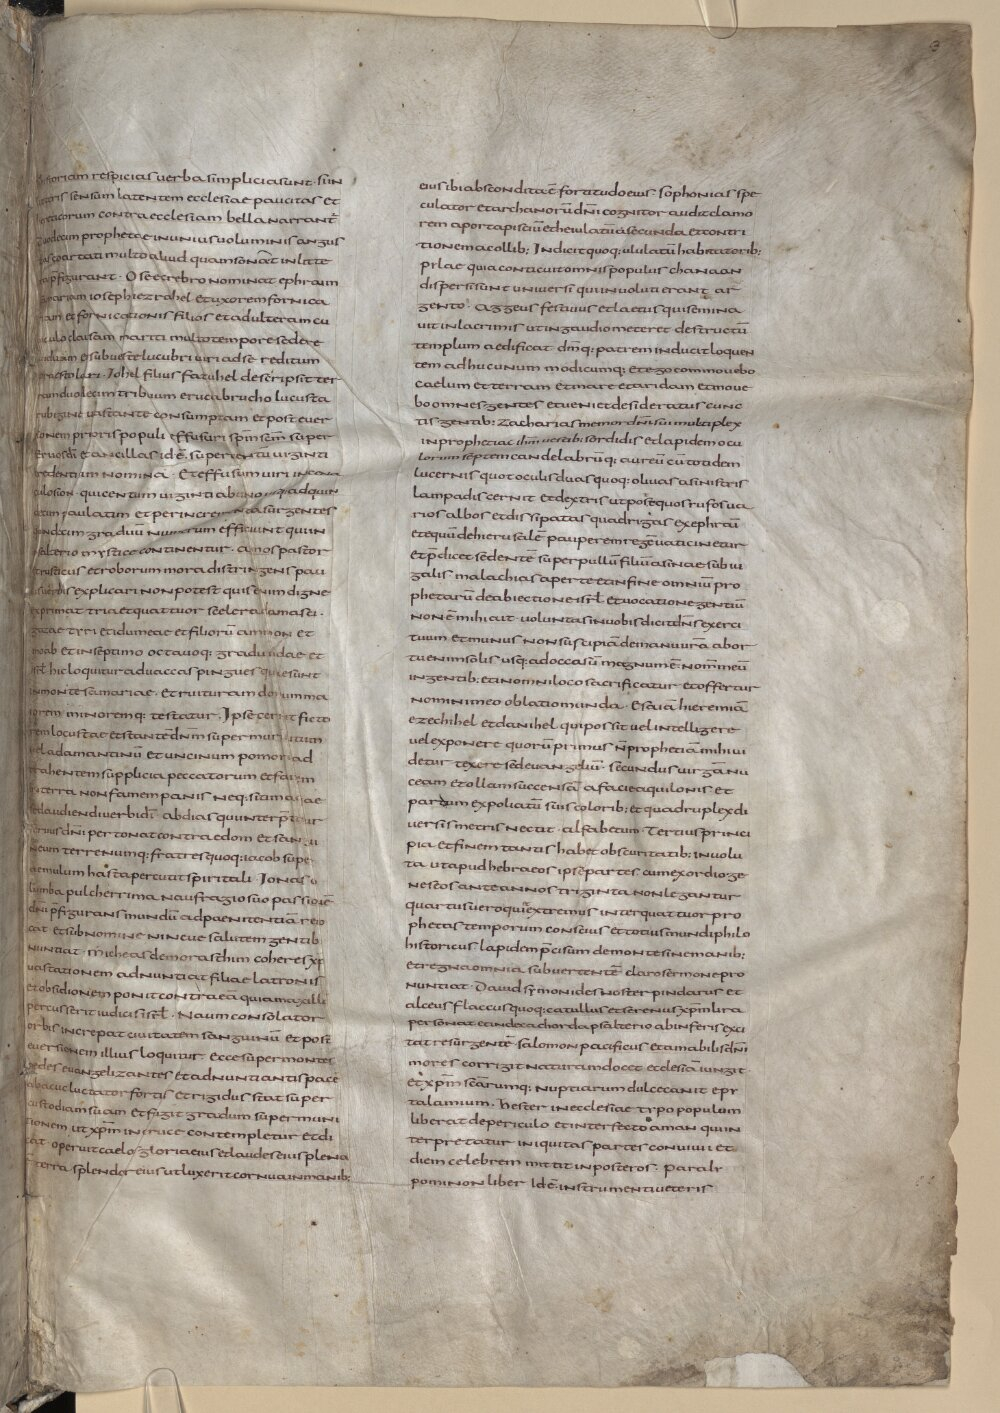 3
historiam respicias uerba simplicia sunt. si in
litteris sensum latentem ecclesiae paucitas et
hereticorum contra ecclesiam bella narrant͛
Duodecim prophetae in unius uoluminis angus
tias coartati multo aliud quam sonant in litte
ra p̄figurant. Osee crebro nominat ephraim
samariam ioseph iezrahel et uxorem fornica
riam et fornicationis filios et adulteram cu
biculo clausam mariti multo tempore sedere
uiduam et sub ueste lucubri uiri ad se reditum
praestolari. Iohel filius fatuhel describit ter
ram duodecim tribuum eruca brucho lucusta
rubigine uastante consumptam et post euer
sionem prioris populi effusum sp̄m sc̄m super
seruos dī et ancillas id ē super centu uiginti
credentium nomina. Et effusum iri in cena
culo sion. qui centum uiginti ab uno usq; ad quin
decim paulatim et per incrementa surgentes
quindecim graduū numerum efficiunt qui in
psalterio mystice continentur. amos pastor
et rusticus et roborum mora distringens pau
cis uerbis explicari non potest quis enim digne
exprimat tria et quattuor scelera damasci.
gazae tyri et idumeae et filiorū ammon et
moab et in septimo octauoq; gradu iudae et
isrl̄ hic loquitur ad uaccas pingues quae sunt
in monte samariae. et ruituram domum ma
iorem minoremq; testatur. Ipse cernit ficto
rem locustae et stantē dn̄m super murū litum
uel adamantinū et uncinum pomorum ad
trahentem supplicia peccatorum et famem
in terra non famem panis neq; sitim aquae
sed audiendi uerbi dī. abdias qui interpretatur
seruus dn̄i pertonat contra edom et sangui
neum terrenumq; fratres quoq; iacob super
aemulum hasta percutit spiritali. Ionas co
lumba pulcherrima naufragio suo passionē
dn̄i p̄figurans mundū ad paenitentiā reuo
cat et sub nomine nineue salutem gentib;
nuntiat. micheas de morasthim coheres xp̄i
uastationem adnuntiat filiae latronis
et obsidionem ponit contra eā quia maxillā
percusserit iudicis isrl̄. Naum consolator
orbis increpat ciuitatem sanguinū et post
euersionem illius loquitur. Ecce super montes
pedes euangelizantis et adnuntiantis pacē
abacuc luctator fortis et rigidus stat super
custodiam suam et figit gradum super muni
tionem ut xp̄m in cruce contempletur et di
cat. operuit caelos gloria eius et laudes eius plena
ē terra. splendor eius ut lux erit cornua in manib;
eius ibi abscondita ē fortitudo eius. sophonias spe
culator et archanorū dn̄i cognitor audit clamo
rem a porta pisciū et heiulatū a secunda et contri
tionem a collib; Indicit quoq; ululatū habitatorib;
pylae quia conticuit omnis populus chanaan
dispersi sunt uniuersi qui inuoluti erant ar
gento. aggeus festiuus et laetus qui semina
uit in lacrimis ut in gaudio meteret destructū
templum aedificat. dm̄q; patrem inducit loquen
tem adhuc unum modicumq; et ego commouebo
caelum et terram et mare et aridam et moue
bo omnes gentes et ueniet desideratus cunc
tis gentib; zacharias memor dn̄i sui multiplex
in prophetia c ih̄m uestib; sordidis et lapidem ocu
lorum septem candelabrūq; aureū cū totidem
lucernis quot oculis duas quoq; oliuas a sinistris
lampadis cernit et dextris ut post equos rufos ua
rios albos et dissipatas quadrigas ex ephraī
et equū de hierusalē pauperem regē uaticinetur
et p̄dicet sedentē super pullū filiū asinae subiu
galis malachias aperte et in fine omniū pro
phetarū de abiectione isrl̄ et uocatione gentiū
non ē mihi ait uoluntas in uobis dicit dn̄s exerci
tuum et munus non suscipiā de manu urā ab or
tu enim solis usq; ad occasū magnum ē nom̄ meū
in gentib; et in omni loco sacrificatur et offertur
nomini meo oblatio munda. Esaiā hieremiā
ezechihel et danihel qui possit uel intellegere
uel exponere quorū primus n̄ prophetiā mihi ui
detur texere sed euangeliū. secundus uirgā nu
ceam et ollam succensā a facie aquilonis et
pardum expoliatū suis colorib; et quadruplex di
uersis metris nectit alfabetum. Tertius princi
pia et finem tantis habet obscuritatib; inuolu
ta ut apud hebraeos ipse partes cum exordio ge
neseos ante annos triginta non legantur
quartus uero qui extremus inter quattuor pro
phetas temporum conscius et totius mundi philo
historicus lapidem p̄cisum de monte sine manib;
et regna omnia subuertentē claro sermone pro
nuntiat. Dauid symonides noster pindarus et
alceus flaccus quoq; catullus et serenus xp̄m lyra
personat et in decachordo psalterio ab inferis exci
tat resurgentē. salomon pacificus et amabilis dn̄i
mores corrigit naturam docet ecclesiā iungit
et xp̄m sc̄arumq; nuptiarum dulce canit epy
talamium. Hester in ecclesiae typo populum
liberat de periculo et interfecto aman qui in
terpretatur iniquitas partes conuiuii et
diem celebrem mittit in posteros. Paraly
pominon liber Id ē instrumenti ueteris